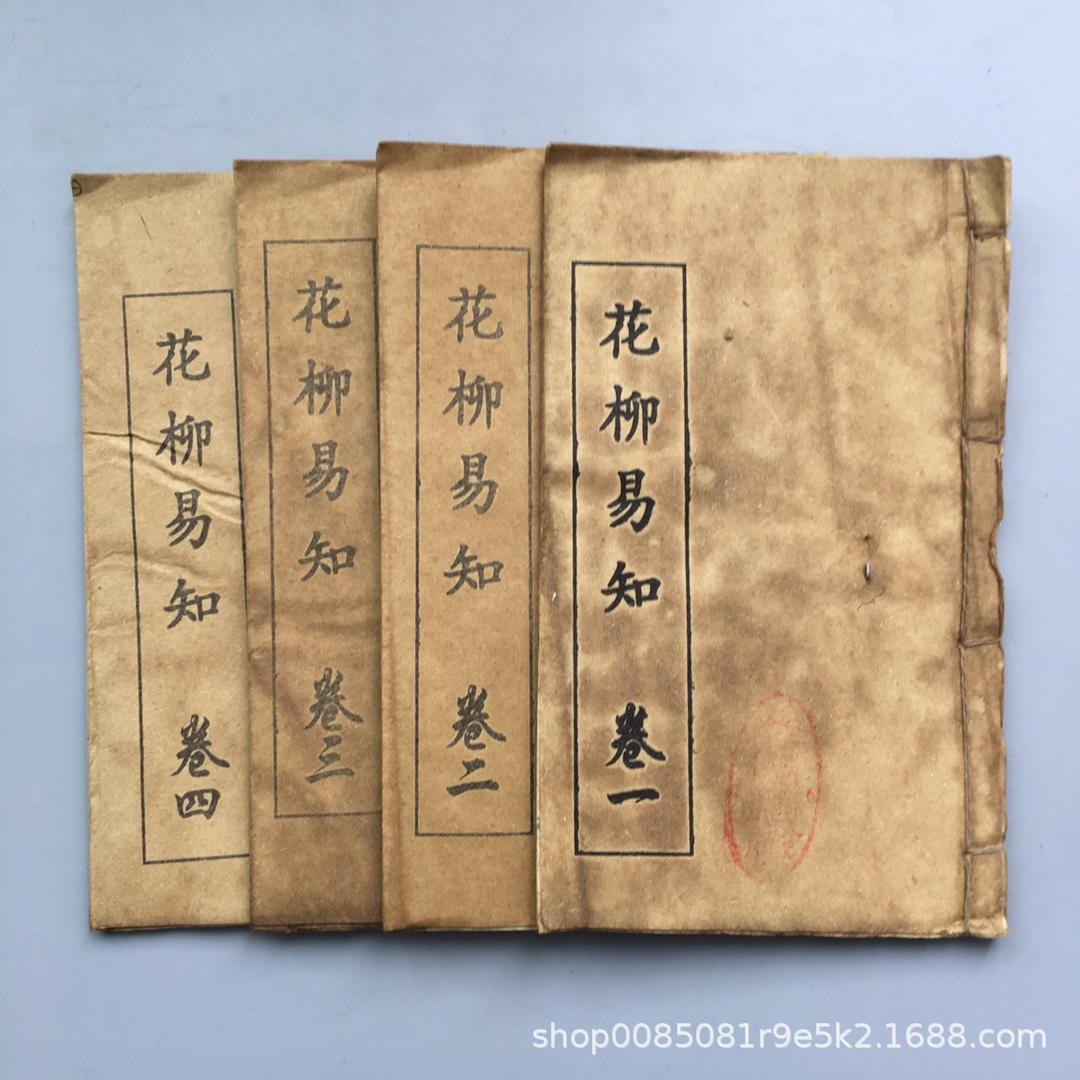 花柳易知 卷一
花柳易知 卷二
花柳易知 卷三
花柳易知 卷四
shop0085081r9e5k2.1688.com